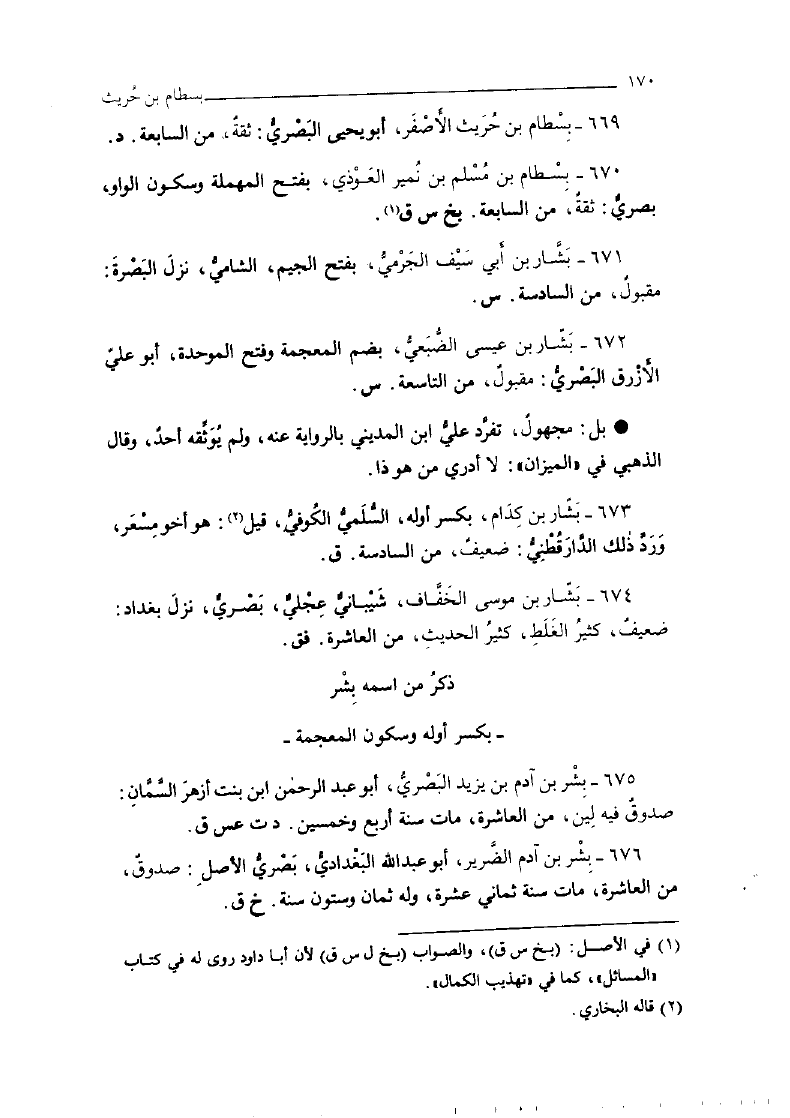 ١٧٠ بسطام بن حُريث
٦٦٩ ـ بِسْطام بن حُرَيث الأَصْفَر، أبو يحيى البَصْريُّ: ثقةٌ، من السابعة. د.
٦٧٠ ـ بِسْطام بن مُسْلم بن نُمير العَوْذي، بفتح المهملة وسكون الواو،
بصريٌّ: ثقةٌ، من السابعة. بخ س ق(١).
٦٧١ ـ بَشَّار بن أبي سَيْف الجَرْميُّ، بفتح الجيم، الشاميُّ، نزلَ البَصْرةَ:
مقبولٌ، من السادسة. س.
٦٧٢ ـ بَشّار بن عيسى الضُّبَعيُّ، بضم المعجمة وفتح الموحدة، أبو عليّ
الأَزْرق البَصْريُّ: مقبولٌ، من التاسعة. س.
● بل: مجهولٌ، تفرَّد عليُّ ابن المديني بالرواية عنه، ولم يُوَثِّقه أحدٌ، وقال
الذهبي في «الميزان»: لا أدري من هو ذا.
٦٧٣ ـ بَشّار بن كِدَام، بكسر أوله، السُّلَميُّ الكُوفيُّ، قيل(٢): هو أخو مِسْعَر،
وَرَدَّ ذٰلك الدَّارَقُطْنِيُّ: ضعيفٌ، من السادسة. ق.
٦٧٤ ـ بَشّار بن موسى الخَفَّاف، شَيْبانيٌّ عِجْليٌّ، بَصْريٌّ، نزلَ بغداد:
ضعيفٌ، كثيرُ الغَلَطِ، كثيرُ الحديثِ، من العاشرة. فق.
ذكرُ من اسمه بِشْر
ـ بكسر أوله وسكون المعجمة ـ
٦٧٥ ـ بِشْر بن آدم بن يزيد البَصْريُّ، أبو عبد الرحمٰن ابن بنت أزهرَ السَّمَّانِ:
صدوقٌ فيه لِين، من العاشرة، مات سنة أربع وخمسين. د ت عس ق.
٦٧٦ ـ بِشْر بن آدم الضَّرير، أبو عبدالله البَغْداديُّ، بَصْريُّ الأصلِ: صدوقٌ،
من العاشرة، مات سنة ثماني عشرة، وله ثمان وستون سنة. خ ق.
(١) في الأصل: (بخ س ق)، والصواب (بخ ل س ق) لأن أبا داود روى له في كتاب
«المسائل»، كما في «تهذيب الكمال».
(٢) قاله البخاري.